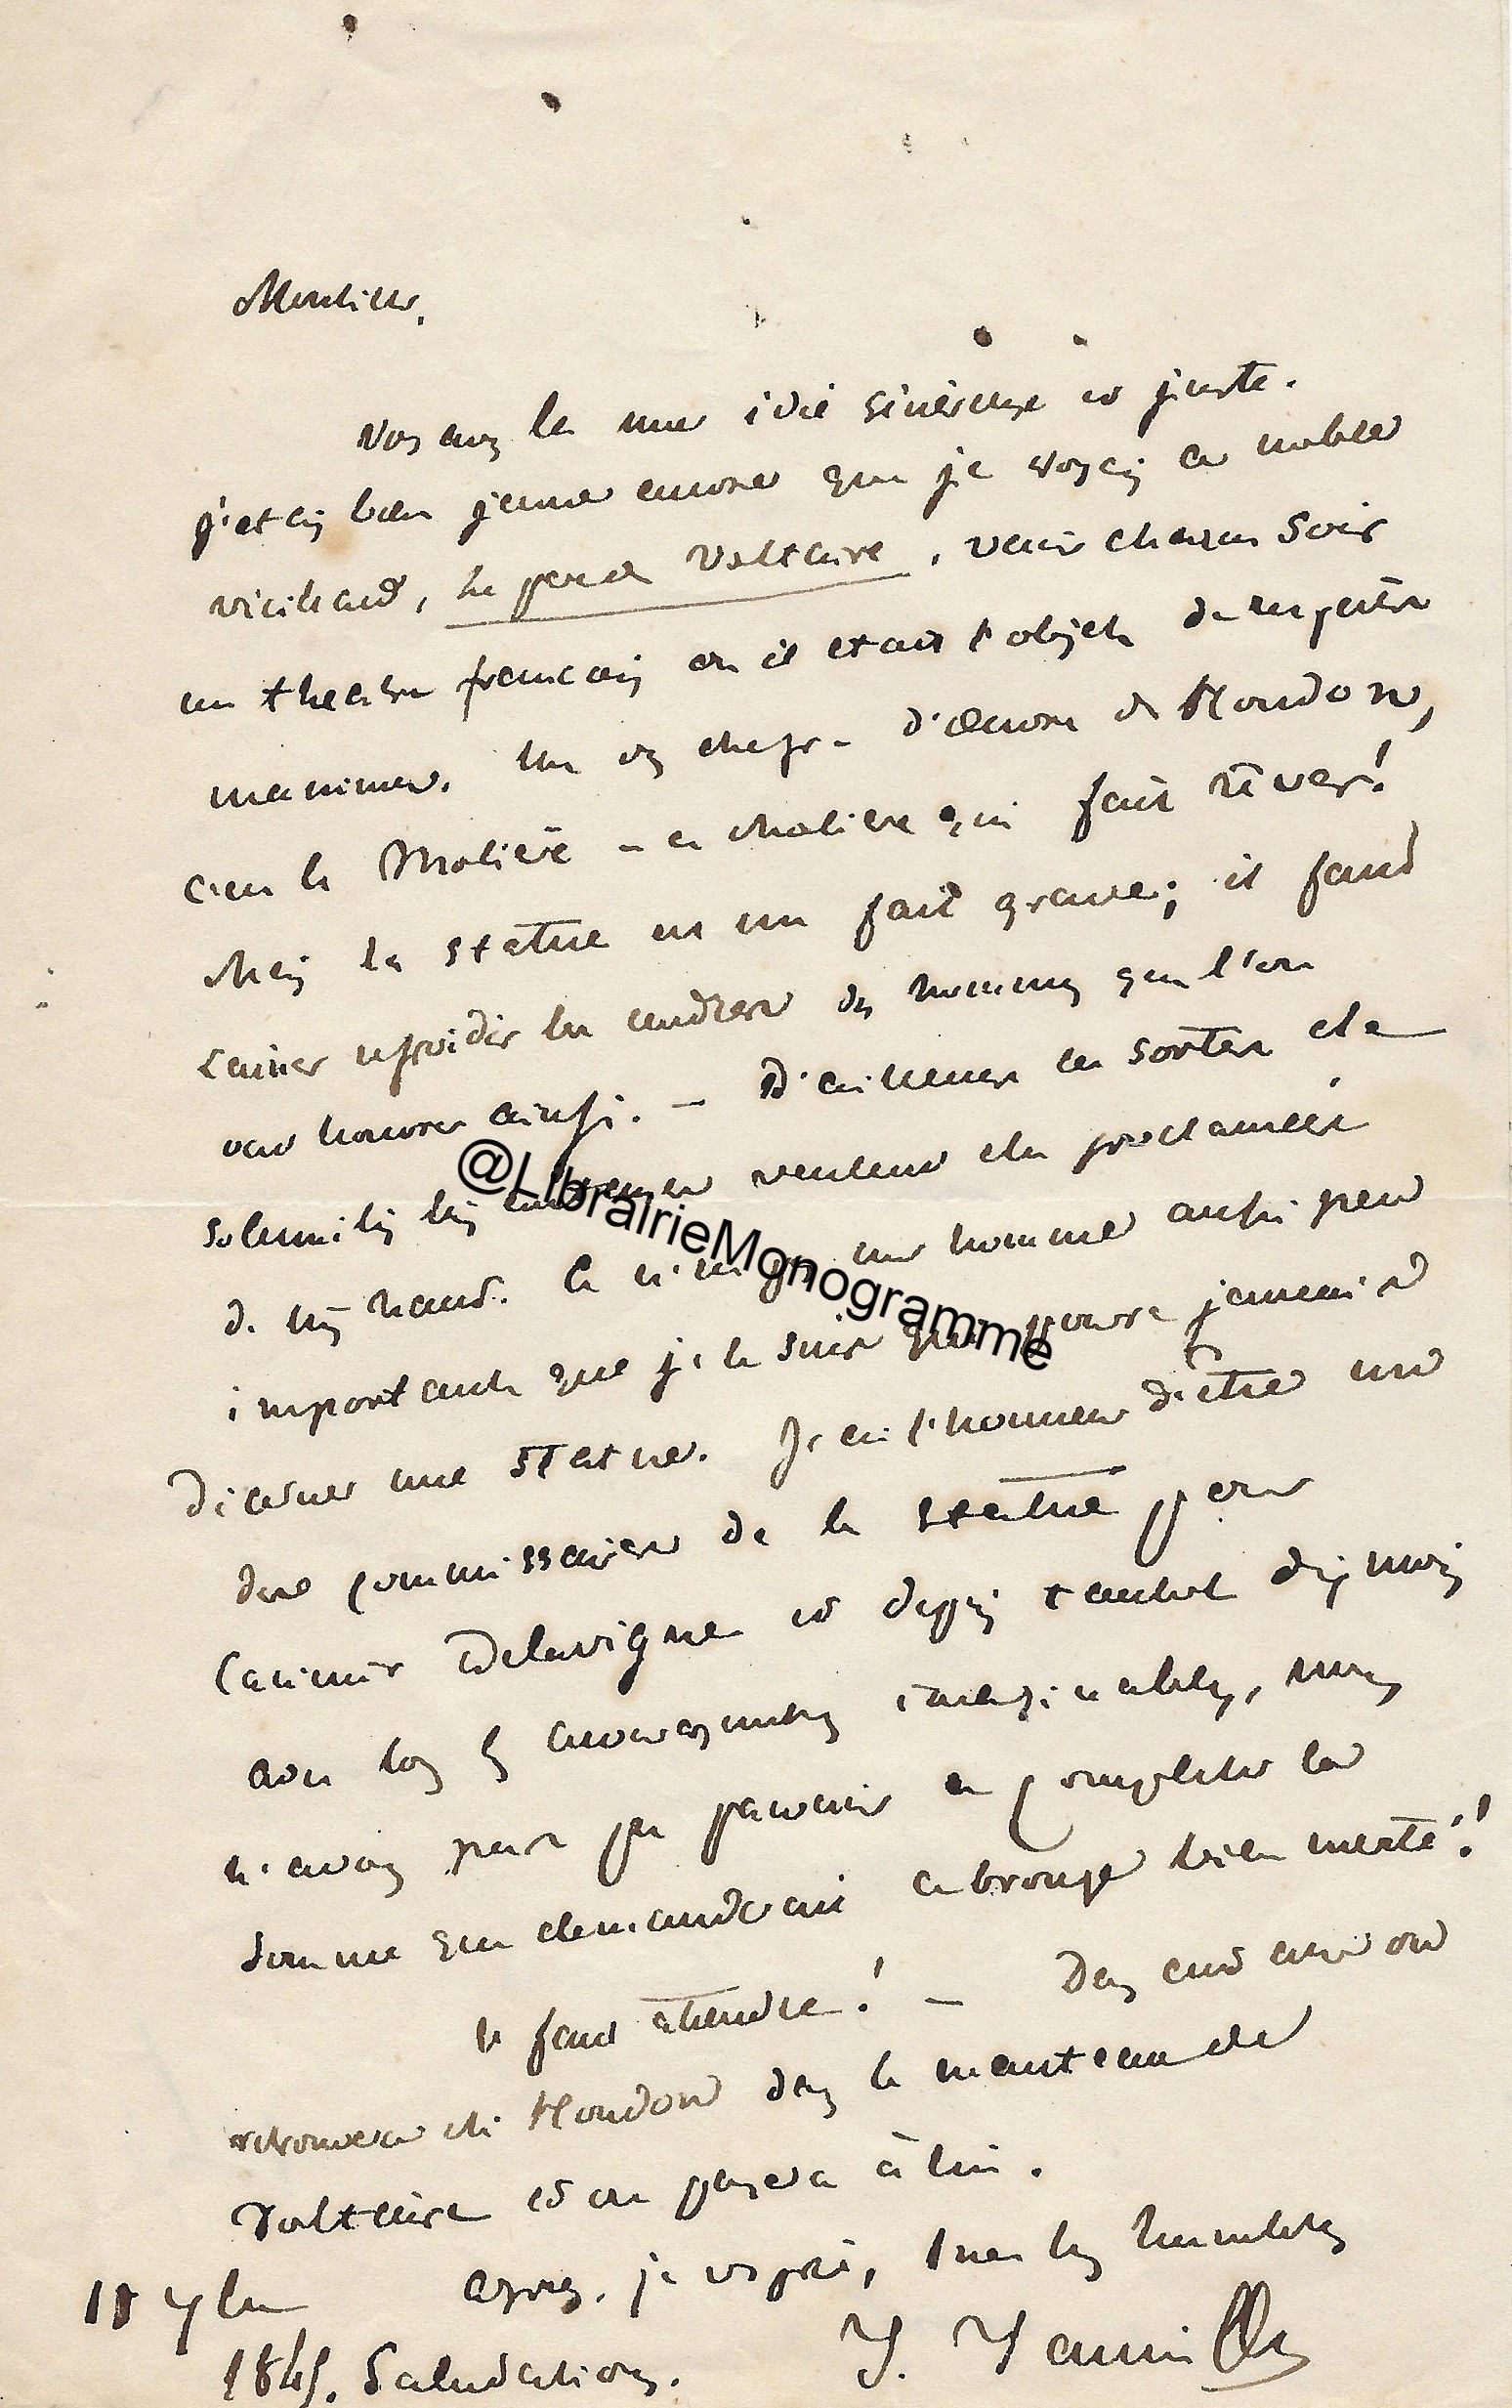 Monsieur,
Vous avez là une idée généreuse et juste.
j'etais bien jeune encore que je voyais ce noble
vieillard, Le père de Voltaire, venir chaque soir
au theatre francais où il etait l'objet du respect
unanime. Un des chefs-d'œuvre de Houdon,
c'est le Molière - ce Molière qui fait rêver!
Mais la statue est un fait grave; il faut
laisser refroidir les cendres des hommes que l'on
veut honorer ainsi. - D'ailleurs ces sortes de
solennités là veulent etre proclamées
de très haut. Ce n'est pas un homme aussi peu
important que je le suis qui pourra jamais
une statue. J'ai l'honneur d'être un
des commissaires de la statue pour
Casimir Delavigne et depuis tantot dix mois
avec tous les imaginables, nous
n'avons pas pu parvenir a completer la
somme que demandait ce bronze bien merité!
Il faut attendre! - Dans cent ans on
retrouvera Houdon dans le manteau de
Voltaire et on pensera à lui.
agréez, je vous prie, mes humbles
18 7bre
1845. Salutations.
J. Janin
@LibrairieMonogramme